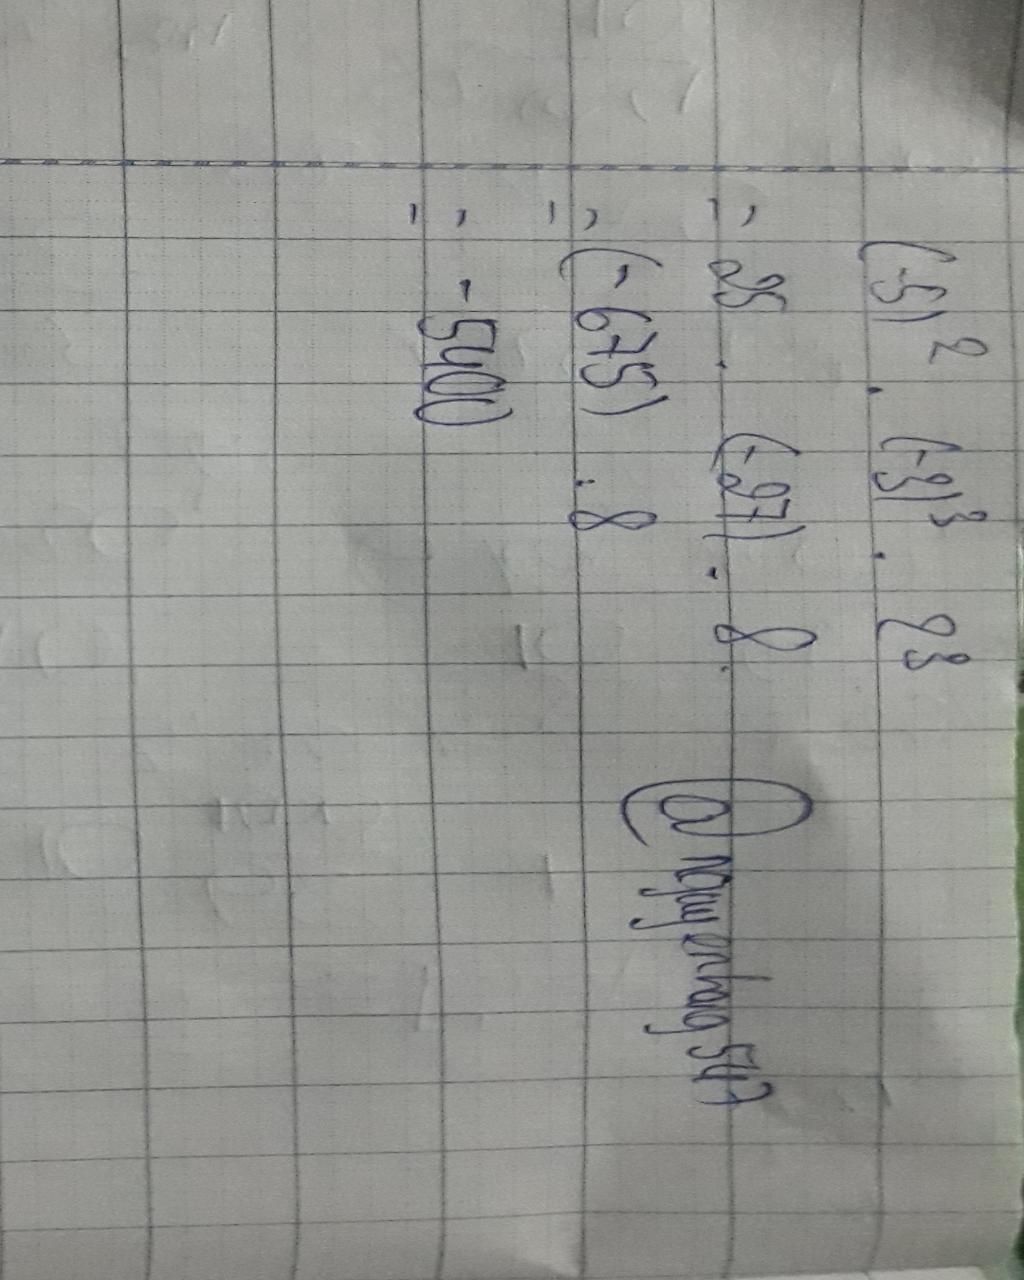 (-5)² . (-3)³ . 2³
= 25 . (-27) . 8
= (-675) . 8
= -5400
@nguyenhoag547